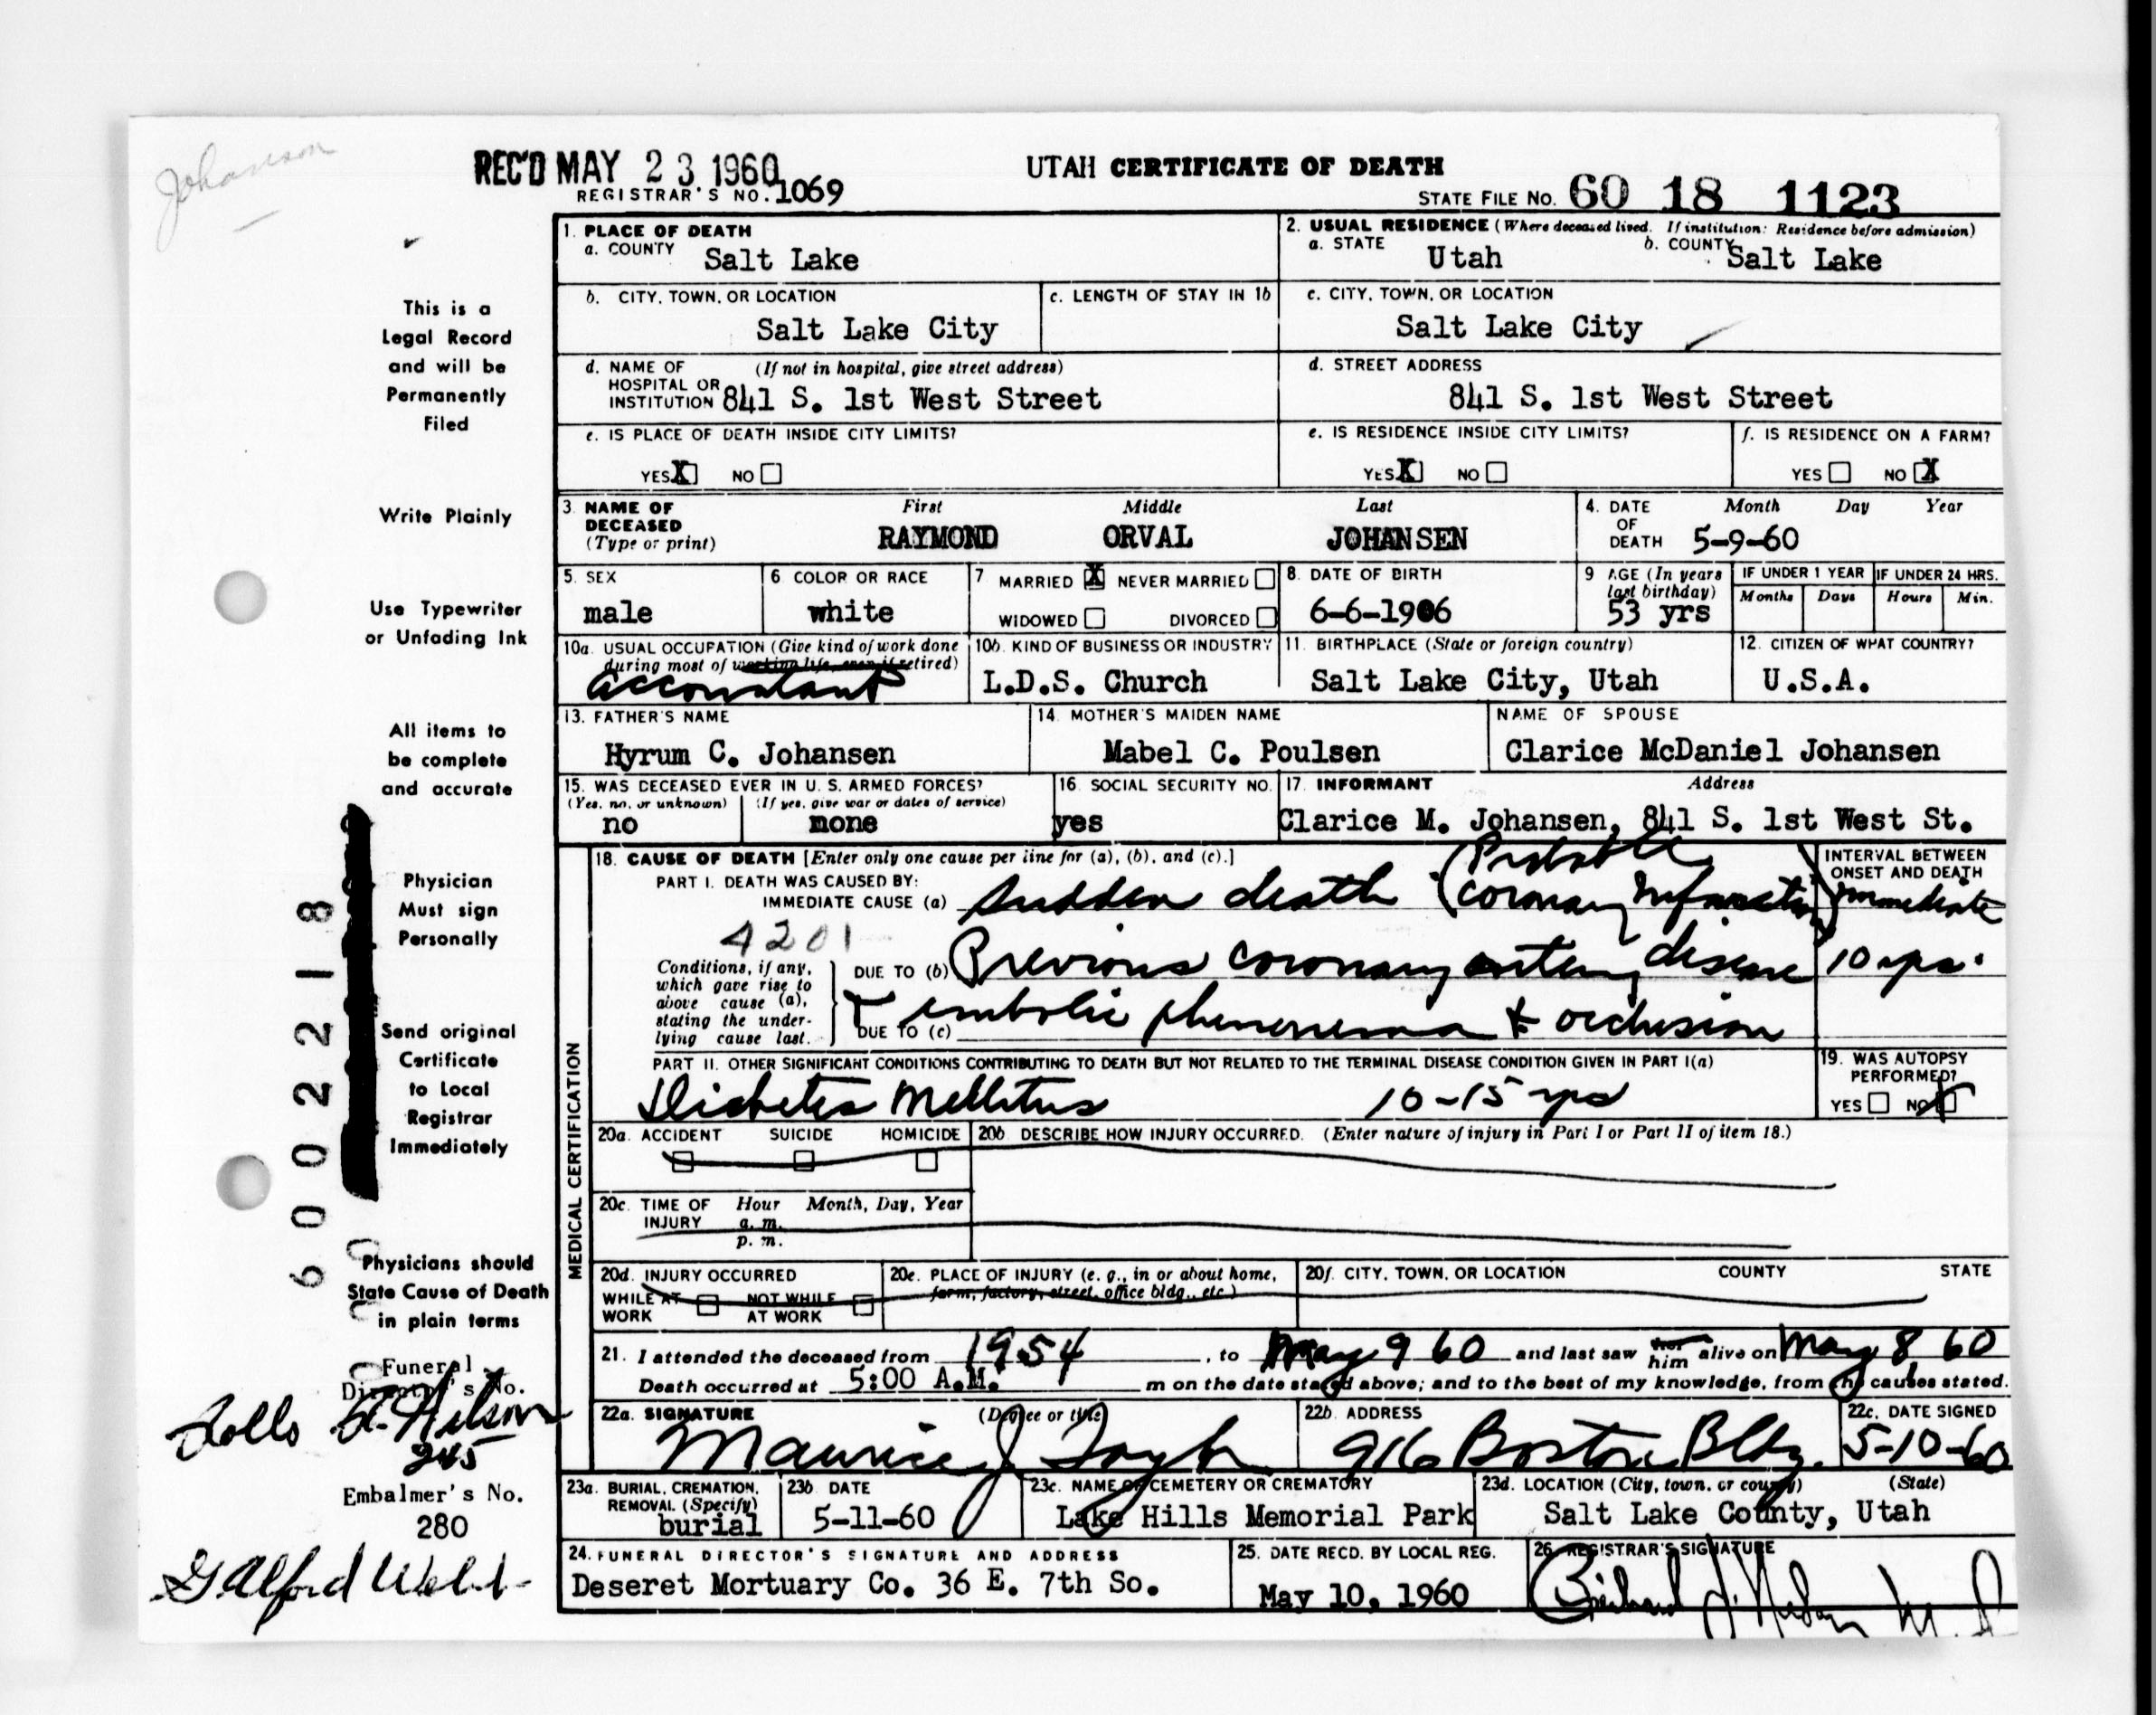 Johanson
REC'D MAY 23 1960
REGISTRAR'S NO. 1069
UTAH CERTIFICATE OF DEATH
STATE FILE NO. 60 18 1123
This is a
Legal Record
and will be
Permanently
Filed
Write Plainly
Use Typewriter
or Unfading Ink
All items to
be complete
and accurate
Physician
Must sign
Personally
Send original
Certificate
to Local
Registrar
Immediately
Physicians should
State Cause of Death
in plain terms
Funeral
Director's No.
245
Embalmer's No.
280
6 0 0 2 2 1 8
1. PLACE OF DEATH
a. COUNTY Salt Lake
2. USUAL RESIDENCE (Where deceased lived. If institution: Residence before admission)
a. STATE Utah b. COUNTY Salt Lake
b. CITY, TOWN, OR LOCATION Salt Lake City
c. LENGTH OF STAY IN 1b
c. CITY, TOWN, OR LOCATION Salt Lake City
d. NAME OF HOSPITAL OR INSTITUTION (If not in hospital, give street address) 841 S. 1st West Street
d. STREET ADDRESS 841 S. 1st West Street
e. IS PLACE OF DEATH INSIDE CITY LIMITS?
YES X NO
e. IS RESIDENCE INSIDE CITY LIMITS?
YES X NO
f. IS RESIDENCE ON A FARM?
YES NO X
3. NAME OF DECEASED (Type or print) First Middle Last
RAYMOND ORVAL JOHANSEN
4. DATE OF DEATH Month Day Year
5-9-60
5. SEX male
6 COLOR OR RACE white
7 MARRIED X NEVER MARRIED
WIDOWED DIVORCED
8. DATE OF BIRTH 6-6-1906
9 AGE (In years last birthday) 53 yrs
IF UNDER 1 YEAR Months Days
IF UNDER 24 HRS. Hours Min.
10a. USUAL OCCUPATION (Give kind of work done during most of working life, even if retired)
accountant
10b. KIND OF BUSINESS OR INDUSTRY L.D.S. Church
11. BIRTHPLACE (State or foreign country) Salt Lake City, Utah
12. CITIZEN OF WHAT COUNTRY? U.S.A.
13. FATHER'S NAME Hyrum C. Johansen
14. MOTHER'S MAIDEN NAME Mabel C. Poulsen
NAME OF SPOUSE Clarice McDaniel Johansen
15. WAS DECEASED EVER IN U. S. ARMED FORCES?
(Yes, no, or unknown) no (If yes, give war or dates of service) none
16. SOCIAL SECURITY NO. yes
17. INFORMANT Address
Clarice M. Johansen, 841 S. 1st West St.
MEDICAL CERTIFICATION
18. CAUSE OF DEATH [Enter only one cause per line for (a), (b), and (c).]
INTERVAL BETWEEN ONSET AND DEATH
PART I. DEATH WAS CAUSED BY:
IMMEDIATE CAUSE (a) Sudden death (Probable coronary infarction) immediate
4201
Conditions, if any, which gave rise to above cause (a), stating the underlying cause last.
DUE TO (b) Previous coronary artery disease 10 yrs.
DUE TO (c) + embolic phenomena + occlusion
PART II. OTHER SIGNIFICANT CONDITIONS CONTRIBUTING TO DEATH BUT NOT RELATED TO THE TERMINAL DISEASE CONDITION GIVEN IN PART I(a)
Diabetes Mellitus 10-15 yrs
19. WAS AUTOPSY PERFORMED?
YES NO X
20a. ACCIDENT SUICIDE HOMICIDE
20b. DESCRIBE HOW INJURY OCCURRED. (Enter nature of injury in Part I or Part II of item 18.)
20c. TIME OF INJURY Hour Month, Day, Year
a. m.
p. m.
20d. INJURY OCCURRED
WHILE AT WORK NOT WHILE AT WORK
20e. PLACE OF INJURY (e. g., in or about home, farm, factory, street, office bldg., etc.)
20f. CITY, TOWN, OR LOCATION COUNTY STATE
21. I attended the deceased from 1954, to May 9 60 and last saw her him alive on May 8, 60
Death occurred at 5:00 A.M. m on the date stated above; and to the best of my knowledge, from the causes stated.
22a. SIGNATURE (Degree or title)
Maurice J.
22b. ADDRESS 916 Boston Bldg.
22c. DATE SIGNED 5-10-60
23a. BURIAL, CREMATION, REMOVAL (Specify) burial
23b DATE 5-11-60
23c. NAME OF CEMETERY OR CREMATORY Lake Hills Memorial Park
23d. LOCATION (City, town, or county) (State)
Salt Lake County, Utah
24. FUNERAL DIRECTOR'S SIGNATURE AND ADDRESS
Deseret Mortuary Co. 36 E. 7th So.
25. DATE RECD. BY LOCAL REG.
May 10, 1960
26. REGISTRAR'S SIGNATURE